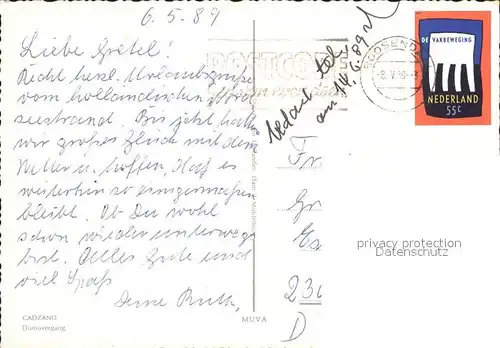 6.5.89
Liebe Gretel!
Recht herzl. Urlaubsgrüsse
vom holländischen Nord-
seestrand. Bis jetzt hatten
wir großes Glück mit dem
Wetter u. hoffen, daß es
weiterhin so einigermaßen
bleibt. Ob Du wohl
schon wieder unterwegs
bist. Alles Gute und
viel Spaß
Deine Ruth
CADZAND
Duinovergang
MUVA
POSTCODE
am 14.6.89
ROOSENDAAL
DE VAKBEWEGING
NEDERLAND
55c
Fr
Gr
230
D
privacy protection
Datenschutz